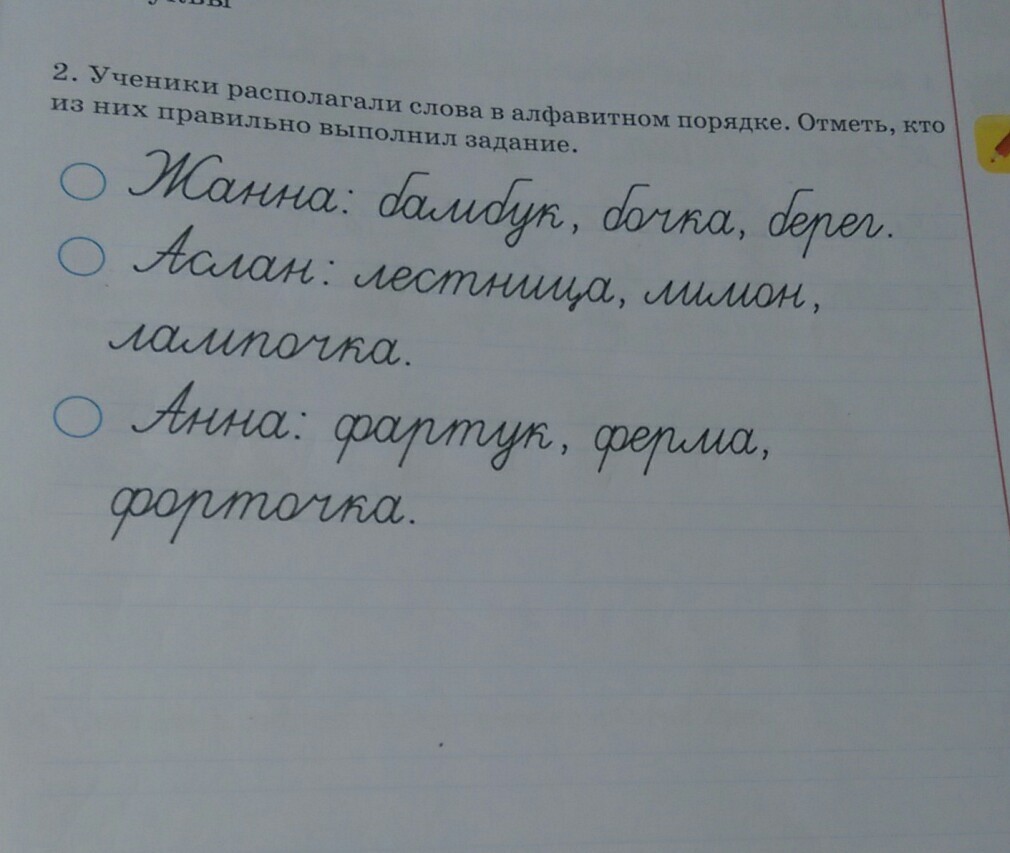 2. Ученики располагали слова в алфавитном порядке. Отметь, кто
из них правильно выполнил задание.
Жанна: бамбук, бочка, берег.
Аслан: лестница, лимон,
лампочка.
Анна: фартук, ферма,
форточка.